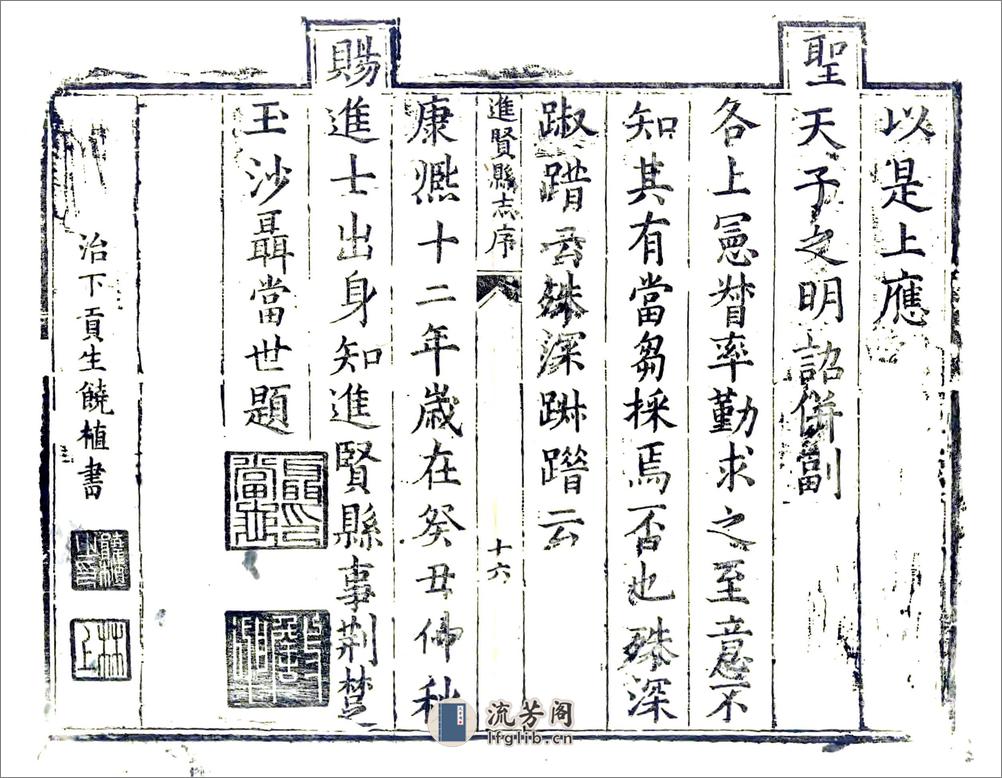 以是上應
聖天子之明詔併副
各上憲督率勤求之至意不
知其有當芻採焉否也殊深
踧踖云殊深踧踖云
進賢縣志序
十六
康熙十二年歲在癸丑仲秋
賜進士出身知進賢縣事荆楚
玉沙聶當世題
治下貢生饒植書
流芳阁
lfglib.cn